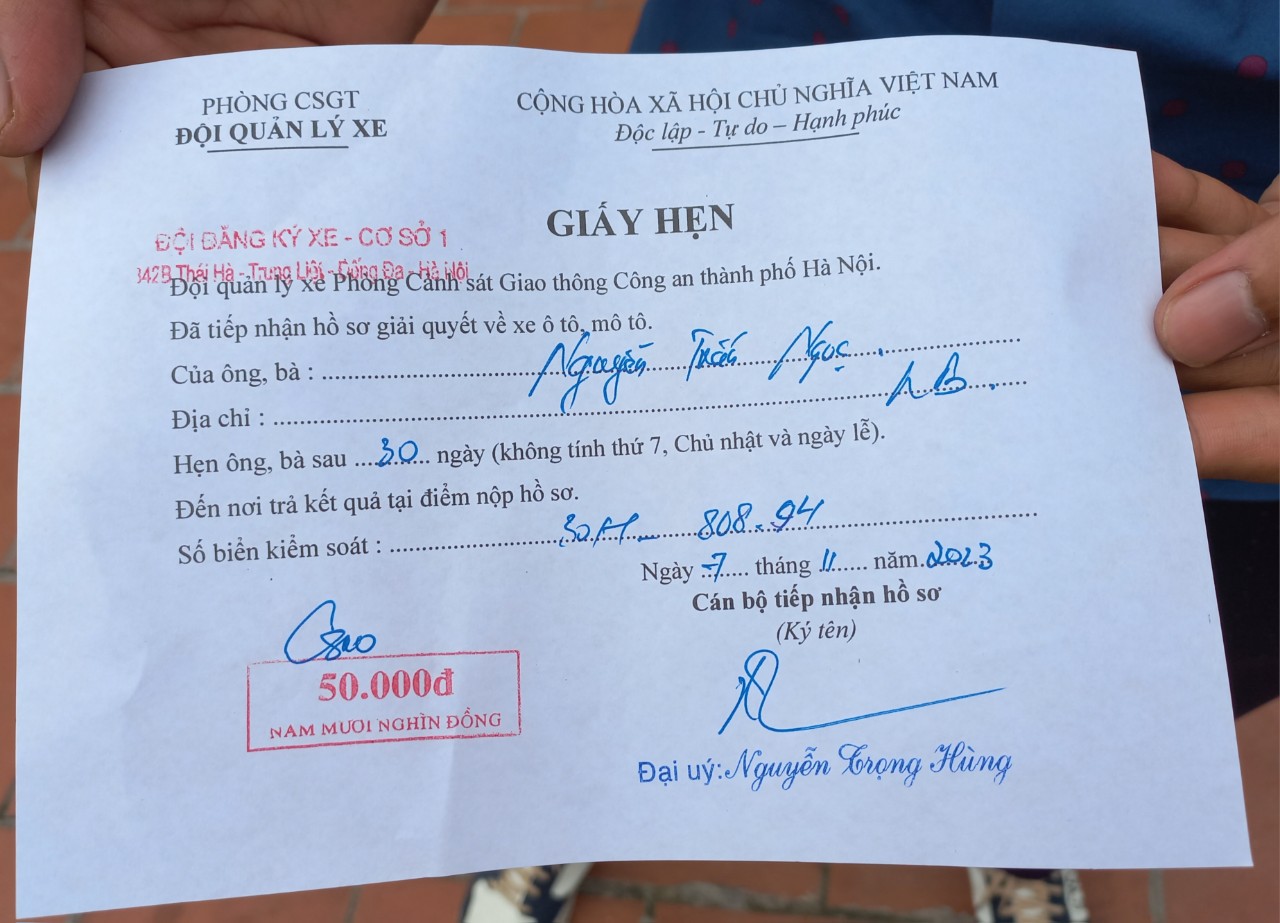 PHÒNG CSGT
ĐỘI QUẢN LÝ XE
CỘNG HÒA XÃ HỘI CHỦ NGHĨA VIỆT NAM
Độc lập - Tự do – Hạnh phúc
GIẤY HẸN
ĐỘI ĐĂNG KÝ XE - CƠ SỞ 1
342B Thái Hà - Trung Liệt - Đống Đa - Hà Nội
Đội quản lý xe Phòng Cảnh sát Giao thông Công an thành phố Hà Nội.
Đã tiếp nhận hồ sơ giải quyết về xe ô tô, mô tô.
Của ông, bà : Nguyễn Ngọc
Địa chỉ : LB.
Hẹn ông, bà sau 30 ngày (không tính thứ 7, Chủ nhật và ngày lễ).
Đến nơi trả kết quả tại điểm nộp hồ sơ.
Số biển kiểm soát : 30H - 808.94
Ngày 7 tháng 11 năm 2023
Cán bộ tiếp nhận hồ sơ
(Ký tên)
50.000đ
NĂM MƯƠI NGHÌN ĐỒNG
Đại uý: Nguyễn Trọng Hùng